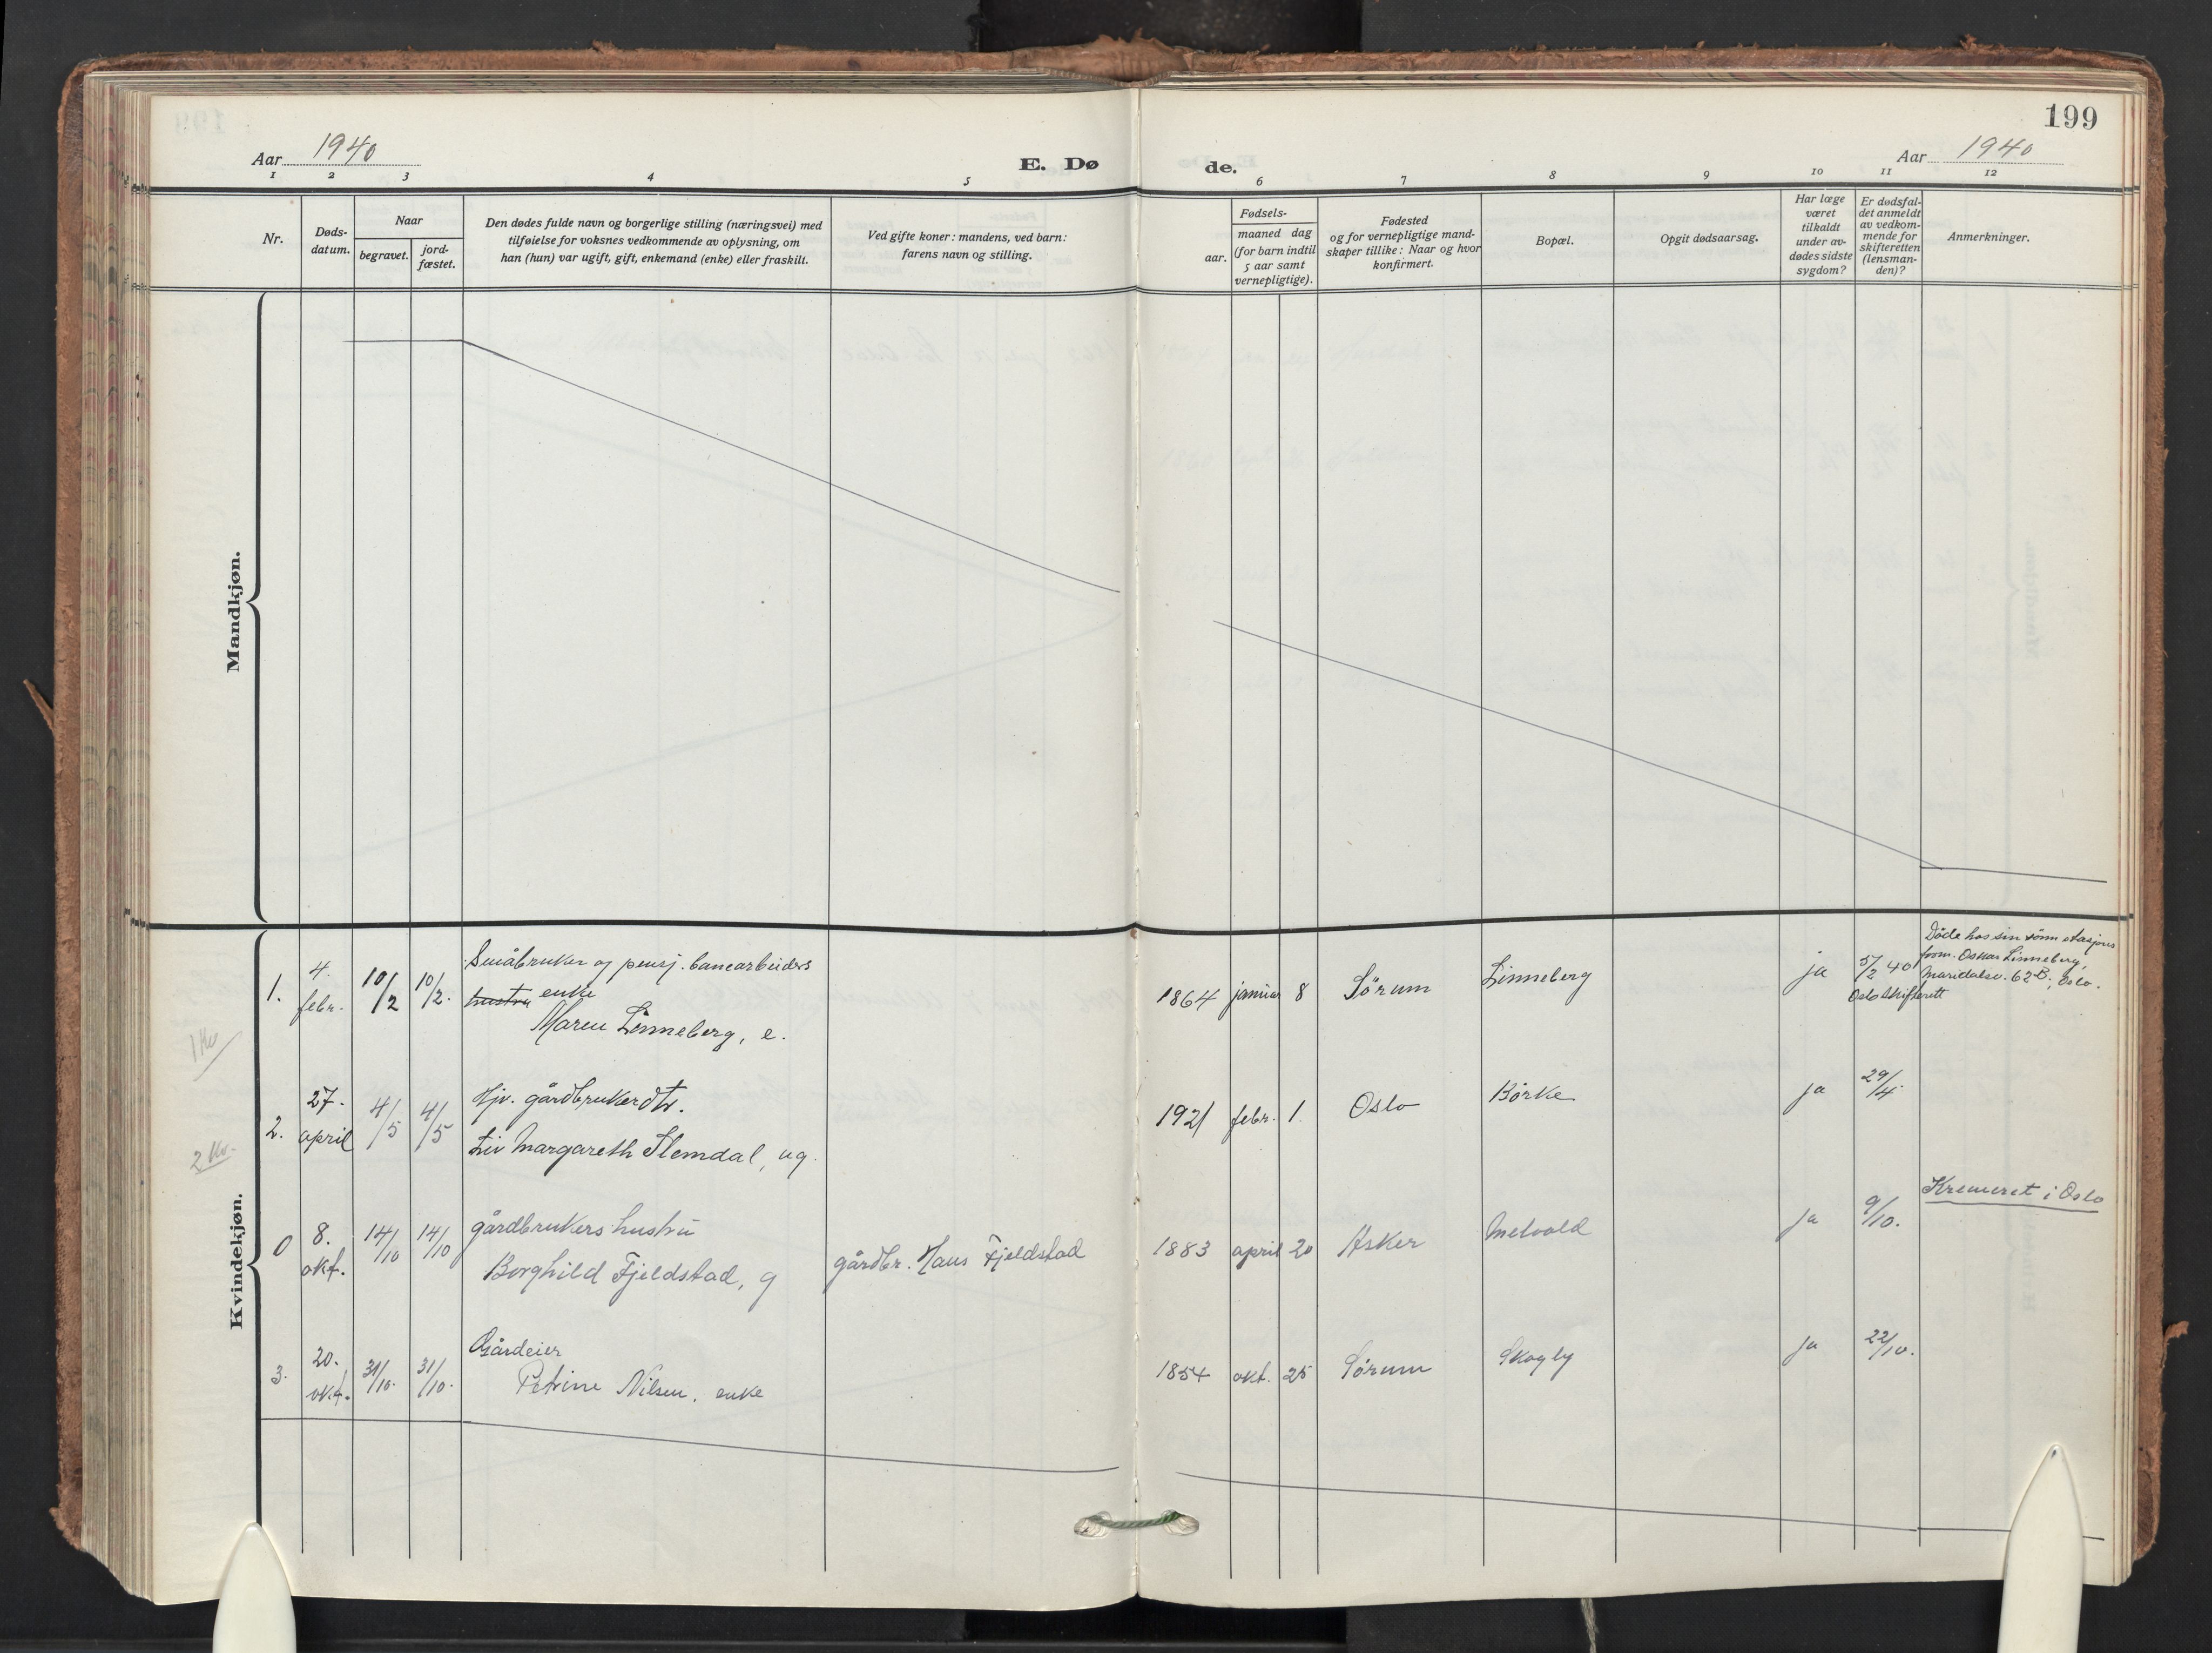 199
Aar 1940
E. Dø
de.
Aar 1940
1 2 3 4 5 6 7 8 9 10 11 12
Nr.
Døds-
datum.
Naar
begravet.
jord-
fæstet.
Den dødes fulde navn og borgerlige stilling (næringsvei) med
tilføielse for voksnes vedkommende av oplysning, om
han (hun) var ugift, gift, enkemand (enke) eller fraskilt.
Ved gifte koner: mandens, ved barn:
farens navn og stilling.
Fødsels-
aar.
maaned dag
(for barn indtil
5 aar samt
vernepligtige).
Fødested
og for vernepligtige mand-
skaper tillike: Naar og hvor
konfirmert.
Bopæl.
Opgit dødsaarsag.
Har læge
været
tilkaldt
under av-
dødes sidste
sygdom?
Er dødsfal-
det anmeldt
av vedkom-
mende for
skifteretten
(lensman-
den)?
Anmerkninger.
Mandkjøn.
Kvindekjøn.
1.
4.
febr.
10/2
10/2.
Småbruker og pensj. banearbeiders
hustru enke
Maren Linneberg, e.
1864 januar 8
Sörum
Linneberg
ja
5/2 40
Oslo skifterett
Döde hos sin sönn stasjons
form. Oskar Linneberg,
Maridalsv. 62 B., Oslo.
2.
27.
april
4/5
4/5
Hjv. gårdbrukerdtr.
Liv Margareth Slemdal, ug.
1921 febr. 1.
Oslo
Börke
ja
29/4.
2 kv.
0
8.
okt.
14/10
14/10
gårdbrukers hustru
Borghild Fjeldstad, g
gårdbr. Hans Fjeldstad
1883 april 20
Asker
Melvold
ja
9/10.
Kremeret i Oslo
3.
20.
okt.
31/10.
31/10.
Gårdeier
Petrine Nilsen, enke
1854 okt. 25
Sörum
Skogly
ja
22/10.